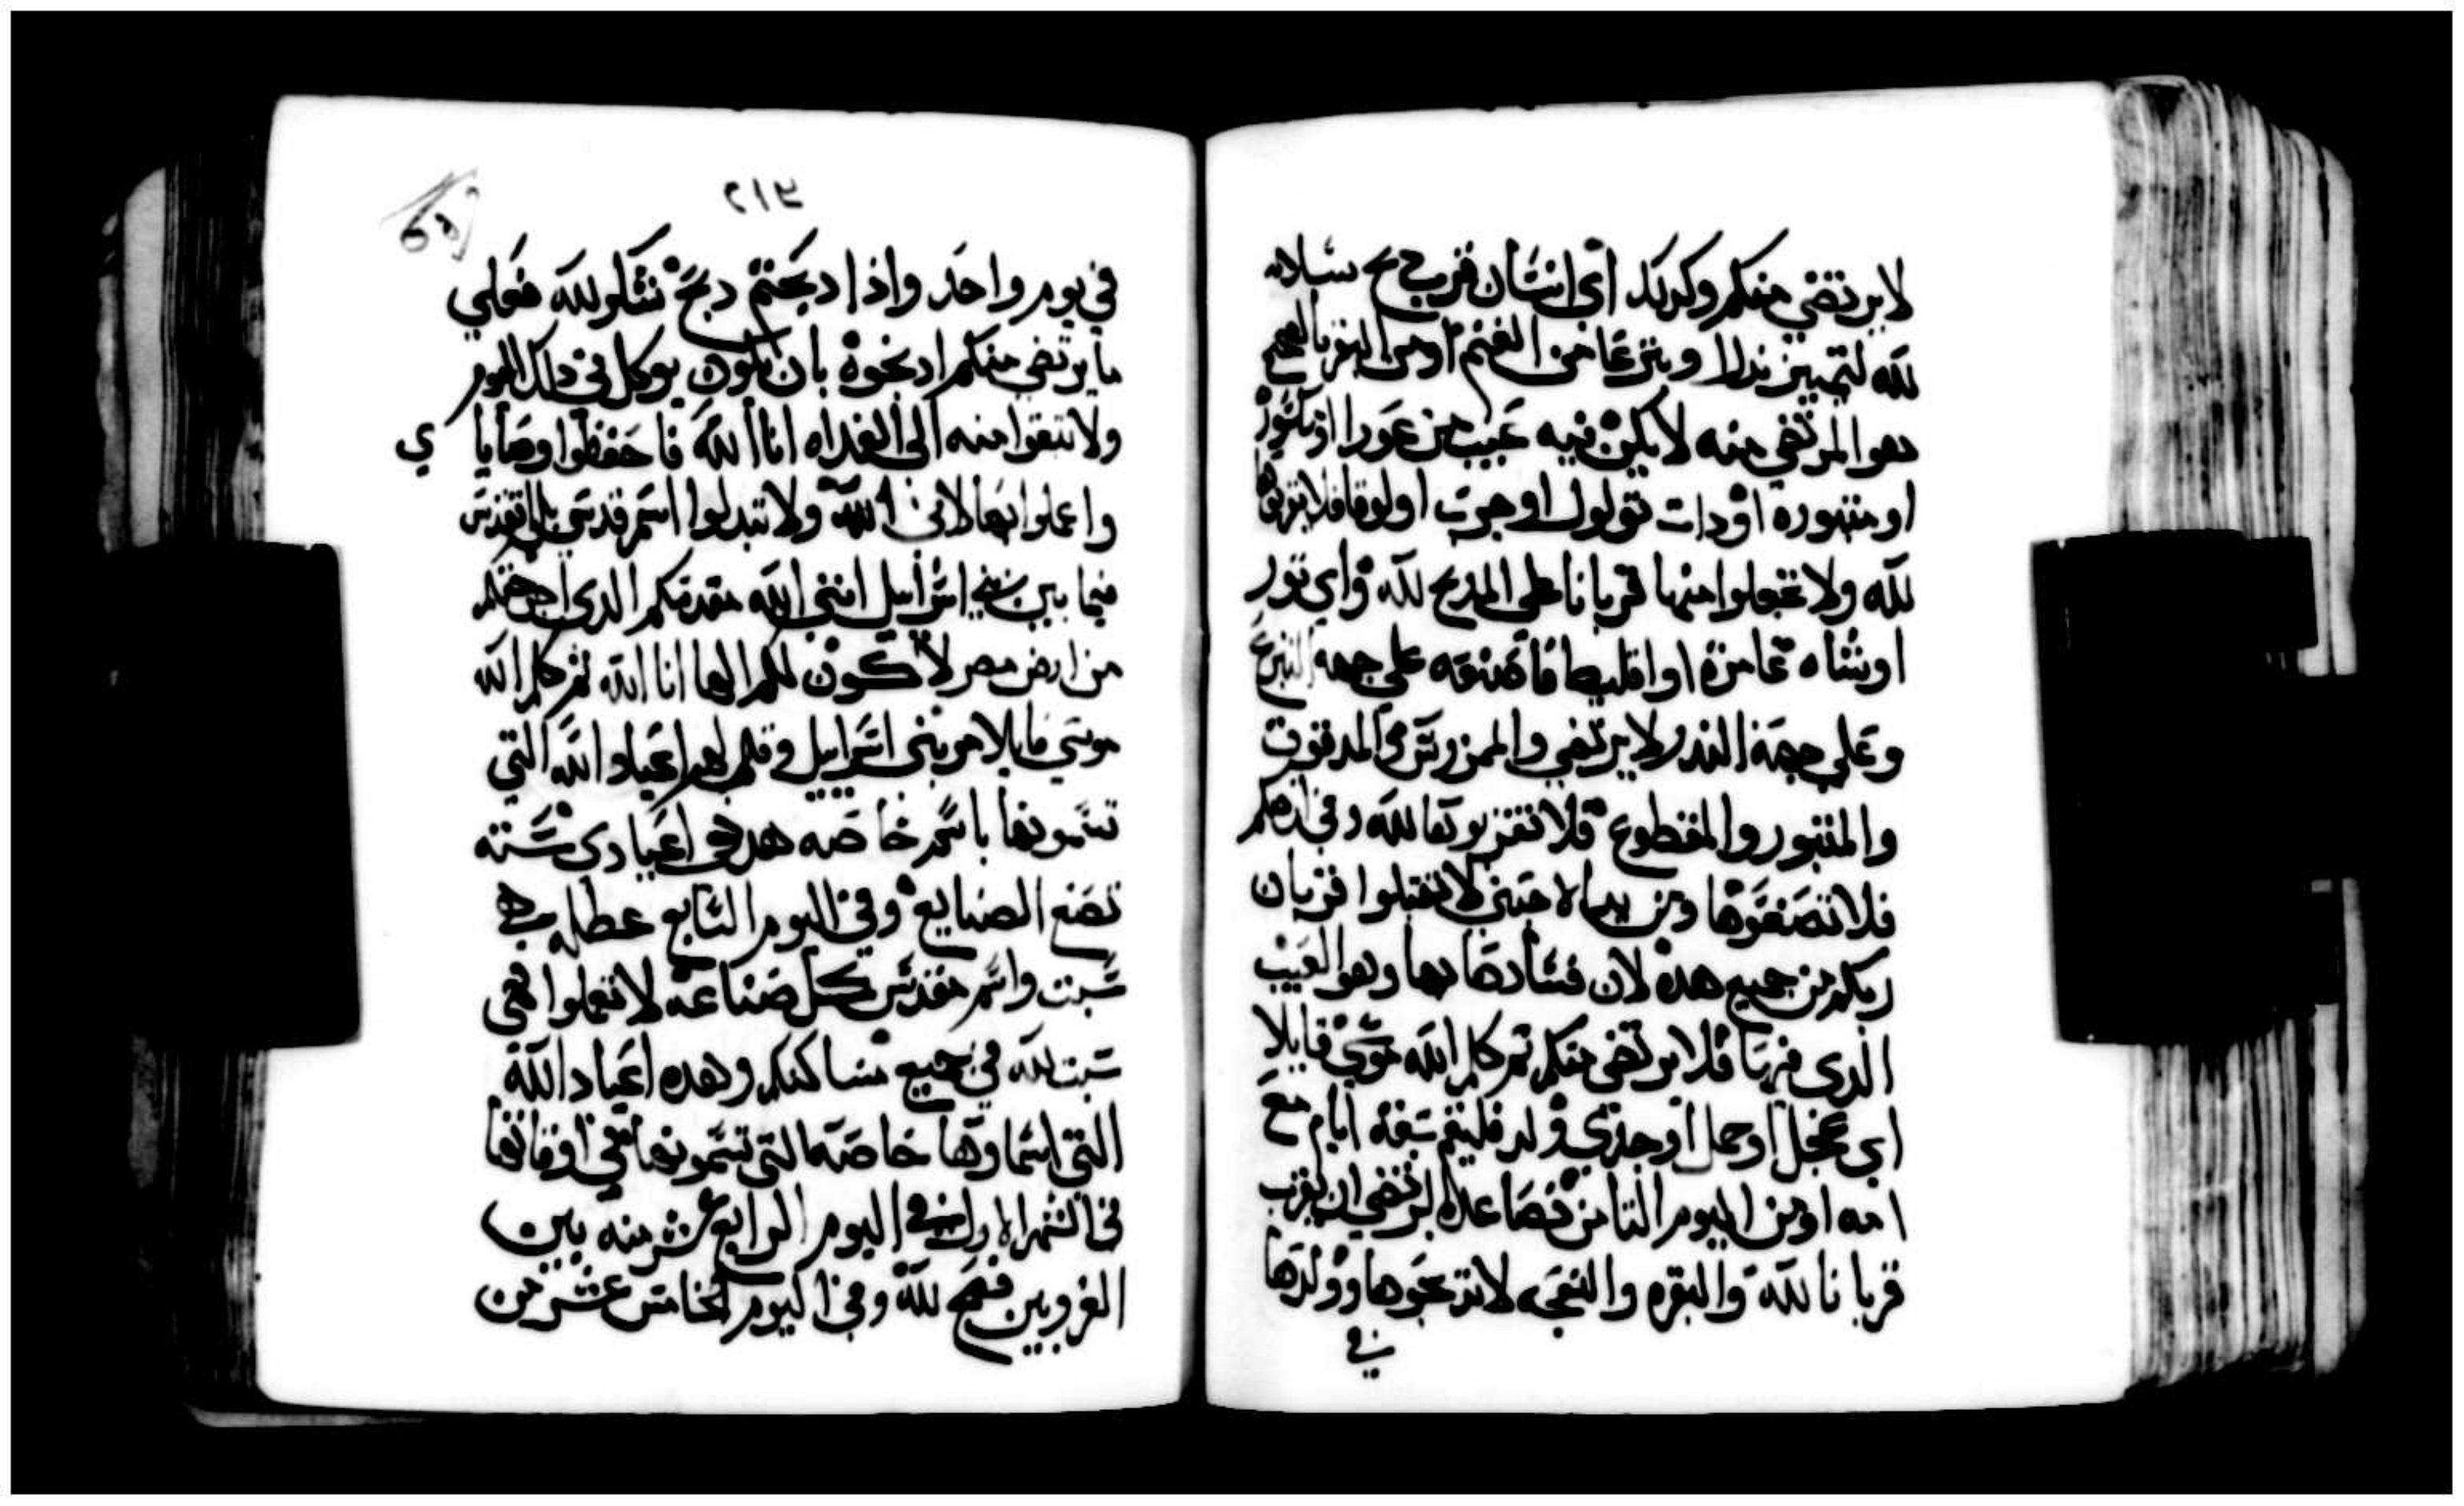 لا يرتضي منكم وكدلك اى انسان قرب دبح سلامه
لله لتمييز ندرا وتبرعا من الغنم او من البقر بالصحيح
دهو المرتضي منه لا يكن فيه عيب من عورا او مكسور
او مبتوره او دات تولول او جرب او لوقا فلا تقربوها
لله ولا تجعلوا منها قربانا علي المدبح لله واي تور
او شاه غامزة او اقليط فاصنعه علي جهه التبرع
وعلي جهة الندر لا يرتضي والممزروس والمدقوق
والمبتور والمقطوع فلا تقربوها لله وفي ارضكم
فلا تصنعوها ومن يد اجنبي لا تقبلوا قربان
ربكم من جميع هده لان فسادها بها وهو العيب
الدى فيها فلا يرتضي منكم تم كلم الله موسي قايلا
اي عجل او حمل او جدي ولد فليقم سبعة ايام مع
امه او من اليوم التامن فصاعدا يرتضي ان يقرب
قربانا لله والبقره والنعجه لا تدبحوها وولدها
في
٢١٣
في يوم واحد وادا دبحتم دبح شكر لله فعلي
ما يرتضي منكم ادبحوه بان يكون يوكل في دلك اليوم
ولا تبقوا منه الى الغداه انا الله فاحفظوا وصايا ي
واعملوا بها لاني الله ولا تبدلوا اسم قدسي بل اتقدس
فيما بين بني اسراييل انني الله مقدسكم الدى اخرجتكم
من ارض مصر لاكون لكم الها انا الله تم كلم الله
موسي قايلا مر بني اسراييل وقل لهم اعياد الله التي
تسمونها باسم خاصه هده هي اعيادى سته
تصنع الصنايع وفي اليوم السابع عطله هي
سبت واسم مقدس كل صناعه لا تعملوا فهي
سبت لله في جميع مساكنكم وهده اعياد الله
التي اسماوها خاصه التي تسمونها في اوقاتها
في الشهر الاول في اليوم الرابع عشر منه بين
الغروبين فصح لله وفي اليوم الخامس عشر من